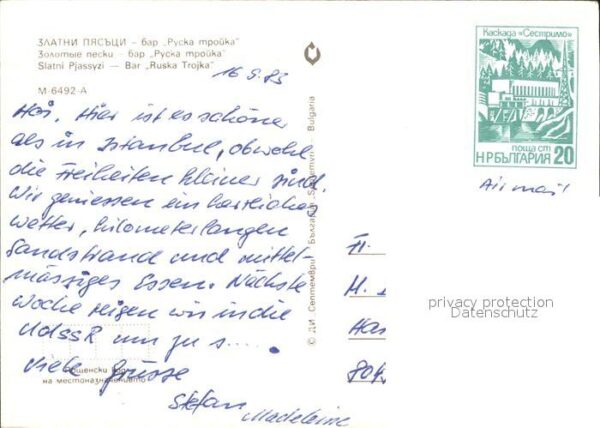 ЗЛАТНИ ПЯСЪЦИ – бар „Руска тройка"
Золотые пески – бар „Руска тройка"
Slatni Pjassyzi — Bar „Ruska Trojka"
16.9.83
М-6492-А
Hoi. Hier ist es schöner
als in Istanbul, obwohl
die Freiheiten kleiner sind.
Wir geniessen ein
wetter, kilometerlangen
Sandstrand und mittel-
mässiges Essen. Nächste
Woche steigen wir in die
UdSSR um zu s.....
Viele Grüsse
Stefan
Madeleine
Пощенски код
на местоназначението
© ДИ „Септември" България „Septemvri" Bulgaria
Каскада «Сестримо»
поща ст
НР БЪЛГАРИЯ 20
Airmail
Fr.
H.
Has
804
privacy protection
Datenschutz